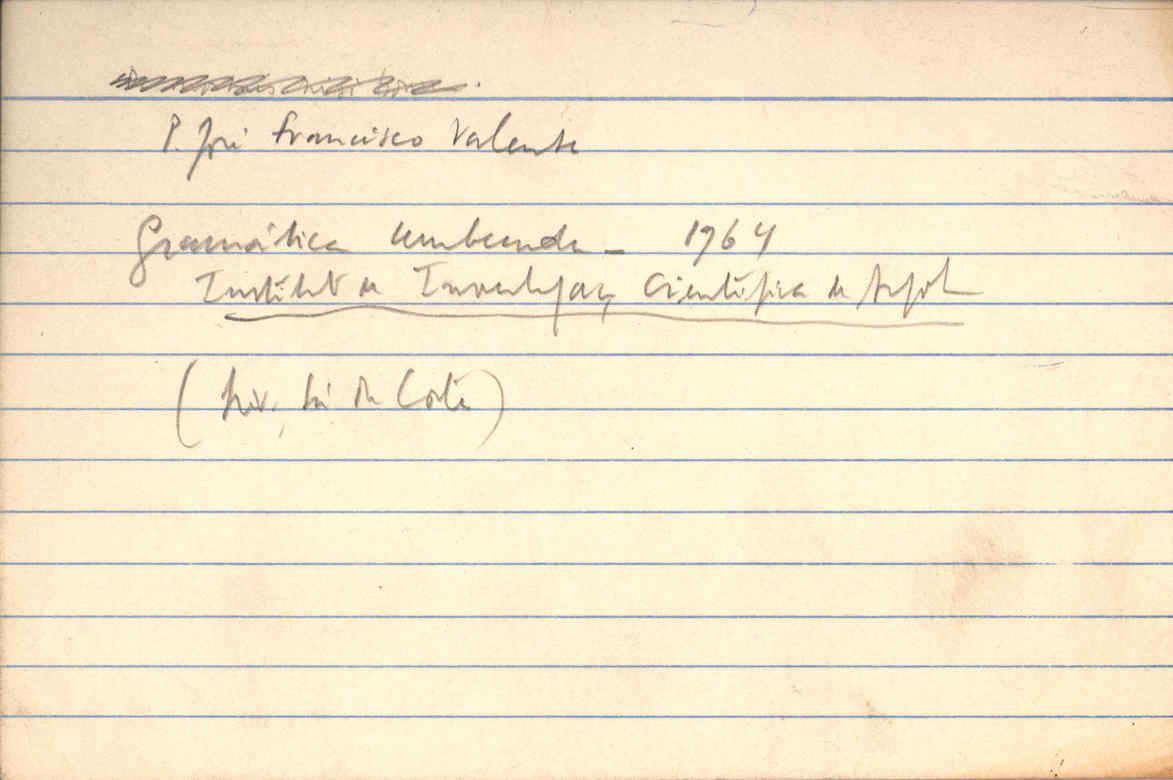 P. José Francisco Valente
Gramática umbunda - 1964
Instituto de Investigação Científica de Angola
(Liv. Sá da Costa)